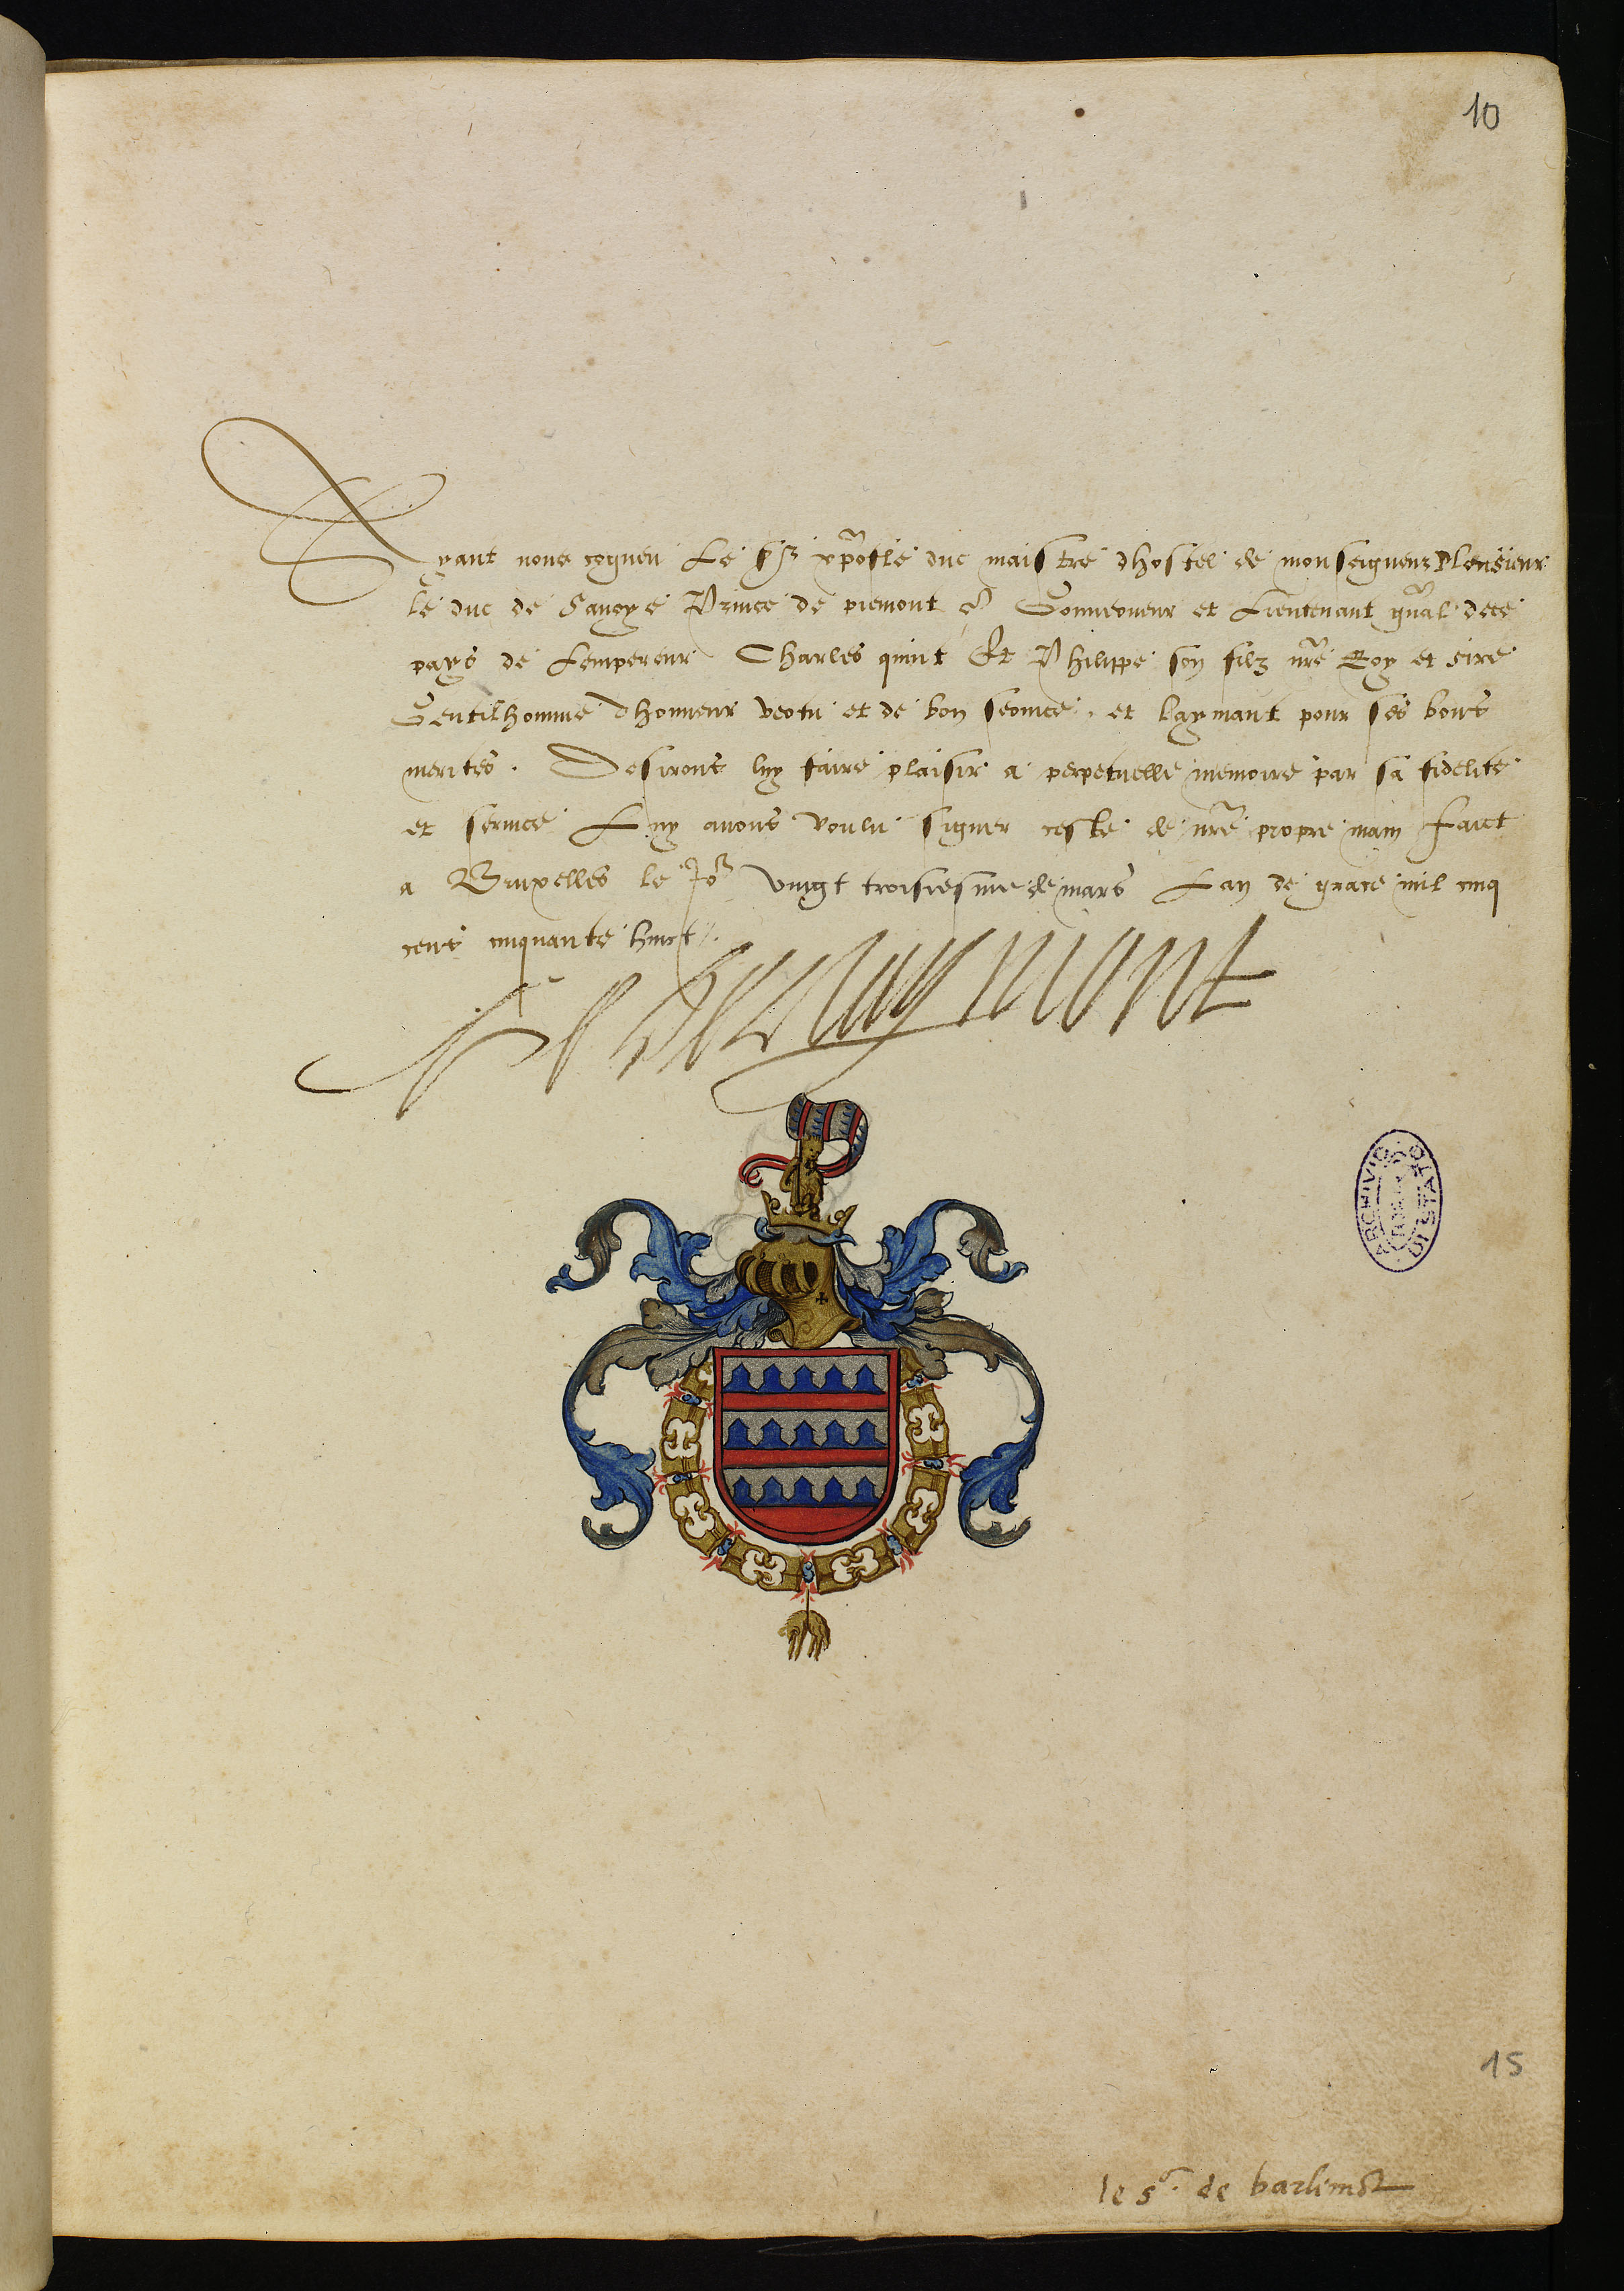 10
Ayant nous cogneu Le Sr xp̄ofle duc maistre dhostel de monseigneur Monsieur
le duc de Savoye Prince de piemont &c Gouverneur et Lieutenant gn̄al dece
pays de Lempereur Charles quint Et Philippe son filz nr̄e Roy et sire
Gentilhomme dhonneur vertu et de bon service, et laymant pour ses bons
merites. Desirons luy faire plaisir a perpetuelle memoire par sa fidelite
et service Luy avons voulu signer ceste de nr̄e propre main Faict
a Bruxelles le Jor vingt troisiesme de mars Lan de grace mil cinq
cens cinquante huict
C de Berlaymont
ARCHIVIO DI STATO
15
le sr. de barlimōt